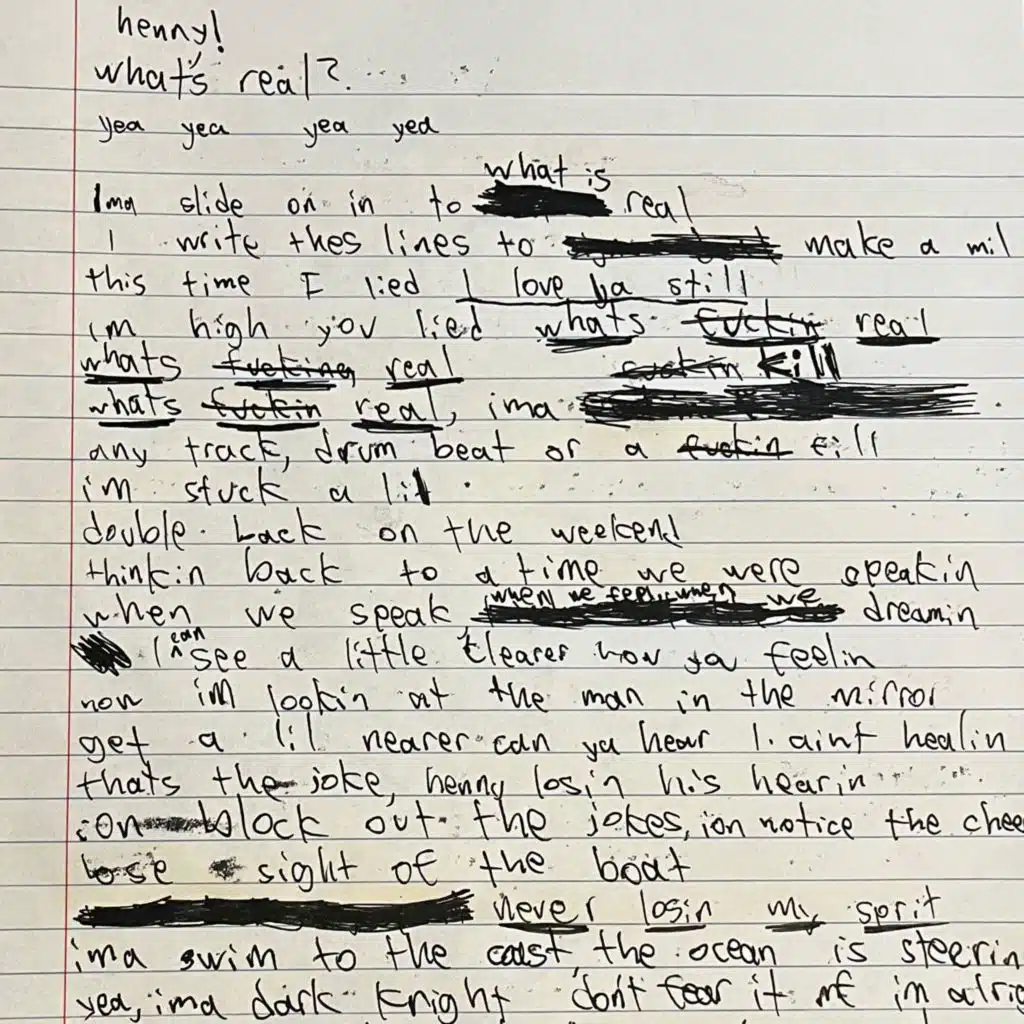 henny!
what's real?
yea yea yea yea
what is
Ima slide on in to real
I write thes lines to make a mil
this time I lied I love ya still
im high you lied whats fuckin real
whats fucking real fuckin kill
whats fuckin real, ima
any track, drum beat or a fuckin fill
im stuck a lil
double back on the weekend
thinkin back to a time we were speakin
when we feel, when we
when we speak dreamin
I can see a little clearer how ya feelin
now im lookin at the man in the mirror
get a lil nearer can ya hear I aint healin
thats the joke, henny losin his hearin
ion block out the jokes, ion notice the chee
lose sight of the boat
never losin my sprit
ima swim to the coast, the ocean is steerin
yea, ima dark knight don't fear it im